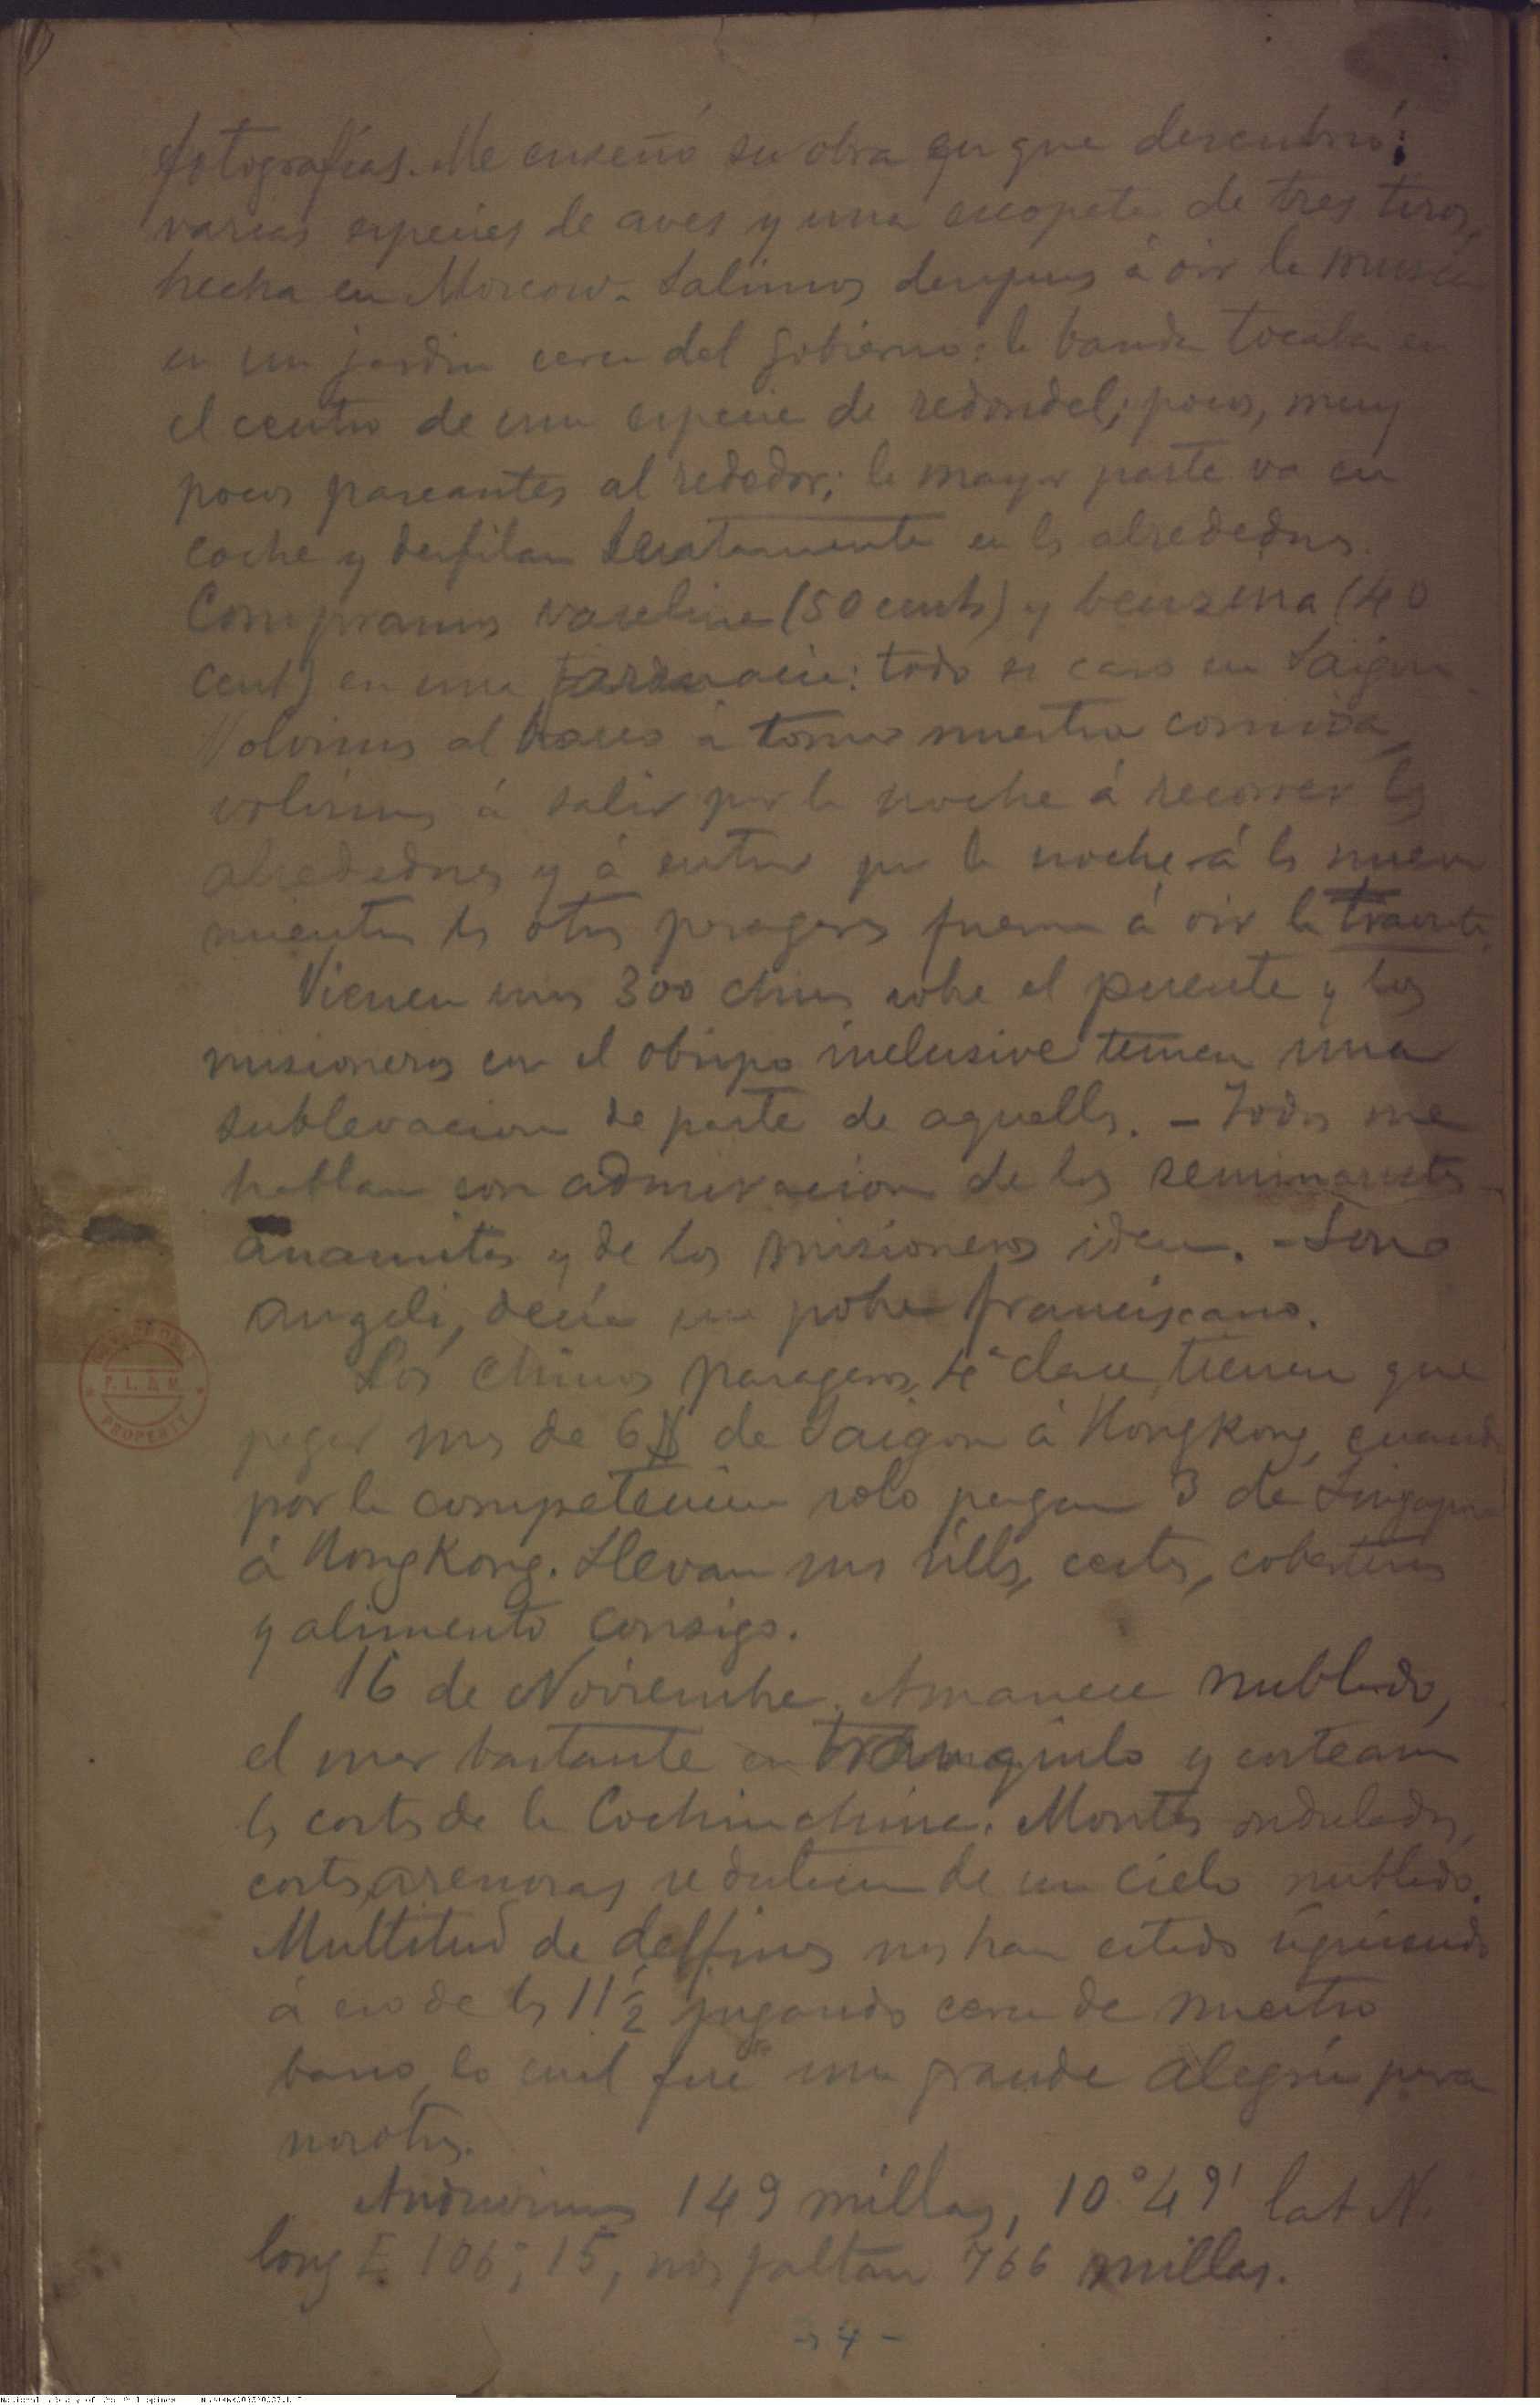 fotografías. Me enseñó su obra en que descubrió:
varias especies de aves y una escopeta de tres tiros,
hecha en Moscow. Salimos despues á oir la musica
en un jardin cerca del gobierno: la banda tocaba en
el centro de una especie de redondel; pocos, muy
pocos paseantes al rededor; la mayor parte va en
coche y desfilan lentamente en los alrededores.
Compramos vaselina (50 cents) y benzina (40
cent) en una farmacia: todo es caro en Saigon.
Volvimos al barco á tomar nuestra comida,
volvimos á salir por la noche á recorrer los
alrededores y á entrar por la noche á las nueve
mientras los otros pasageros fueron á oir la
Vienen unos 300 chinos sobre el puente y los
misioneros con el obispo inclusive temen una
sublevacion de parte de aquellos. – Todos me
hablan con admiracion de los seminaristas
anamitas y de los misioneros idem. – Sono
angeli, decía un pobre franciscano.
Los chinos pasageros, 4ª clase, tienen que
pagar mas de 6 $ de Saigon á Hongkong, cuando
por la competencia solo pagan 3 de Singapore
á HongKong. Llevan sus sillas, cestos, cobertores
y alimento consigo.
16 de Noviembre. Amanece nublado,
el mar bastante tranquilo y costeamos
las costas de la Cochinchina. Montes ondulados,
costas arenosas se destacan de un cielo nublado.
Multitud de delfines nos han estado siguiendo
á eso de las 11 ½ jugando cerca de nuestro
barco, lo cual fué una grande alegria para
nosotros.
Anduvimos 149 millas, 10° 49' lat N.
long E 106°, 15, nos faltan 766 millas.
- 4 -
P. L. & M.
PROPERTY